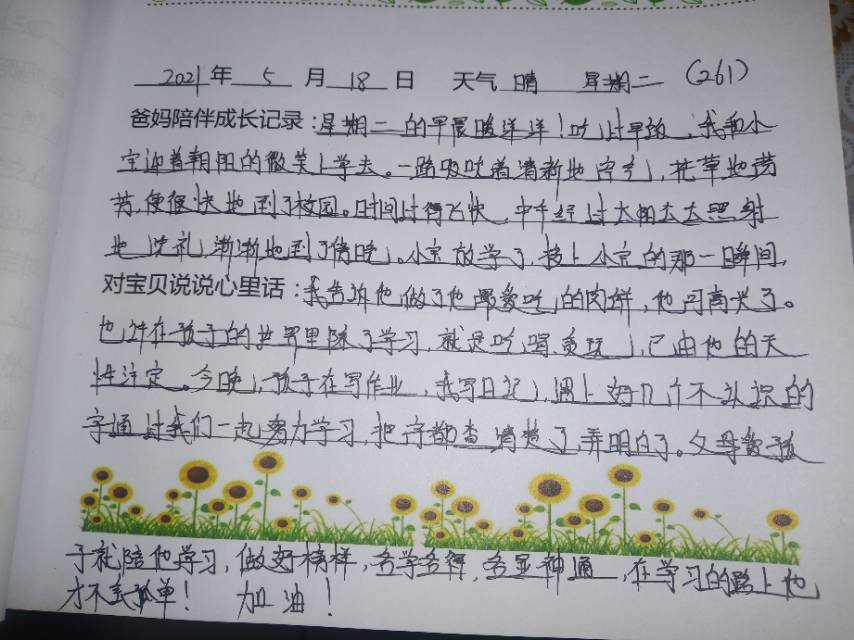 2021年 5 月 18 日 天气 晴 星期二 (261)
爸妈陪伴成长记录：星期二的早晨暖洋洋！吃过早饭，我和小
宝迎着朝阳的微笑上学去。一路吸吮着清新地空气，花草地芳
芳，便很快地到了校园。时间过得飞快，中午经过太阳太太照射
地洗礼，渐渐地到了傍晚。小宝放学了，接上小宝的那一瞬间，
对宝贝说说心里话：我告诉他做了他最爱吃的肉饼，他可高兴了。
也许在孩子的世界里除了学习，就是吃，喝，贪玩，已由他的天
性注定。今晚，孩子在写作业，我写日记，遇上好几个不认识的
字通过我们一起努力学习，把字都查清楚了，弄明白了。父母教孩
子就陪他学习，做好榜样，各学各得，各显神通，在学习的路上他
才不会孤单！ 加油！